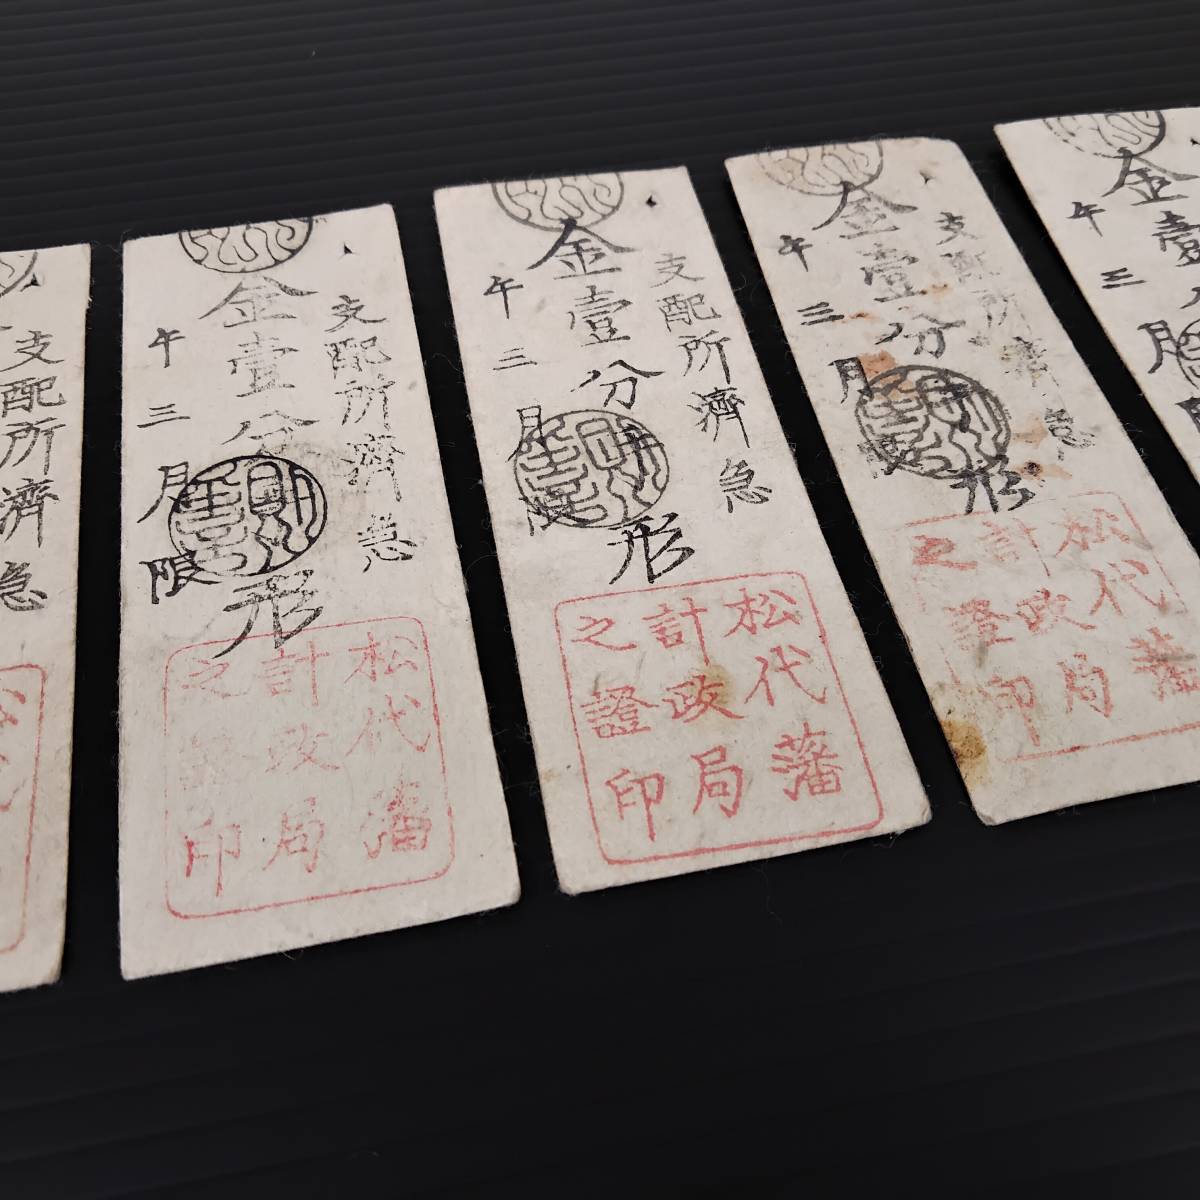 支配所濟急
支配所濟急
金壹分
形
午三月限
松代藩
計政局
之證印
支配所濟急
金壹分
形
午三月限
松代藩
計政局
之證印
支配所濟急
金壹分
形
午三月限
松代藩
計政局
之證印
金壹分
午三月